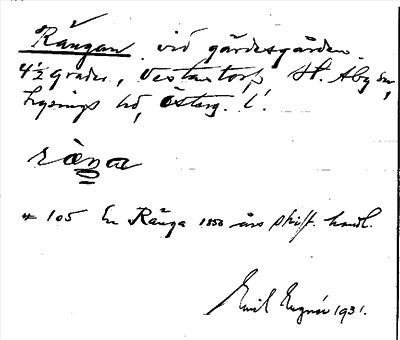 Rångan vid gärdesgården
4½ grader, Vestantorp St. Åby sn,
Lysings hd, Österg. l.
råŋa
# 105 En Rånga 1850 års skift. handl.
Emil 1931.